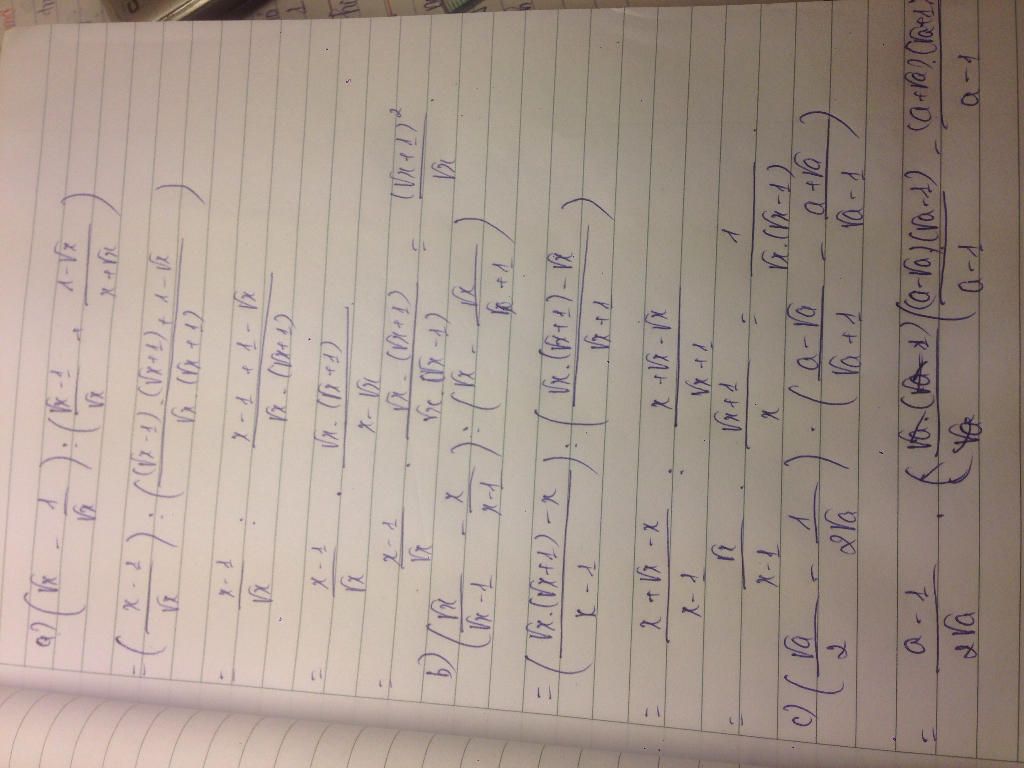 a) (√x - 1/√x) : ((√x-1)/√x + (1-√x)/(x+√x))
= ((x-1)/√x) : (((√x-1).(√x+1)+1-√x)/(√x.(√x+1)))
= (x-1)/√x : (x-1+1-√x)/(√x.(√x+1))
= (x-1)/√x . (√x.(√x+1))/(x-√x)
= (x-1)/√x . (√x.(√x+1))/(√x.(√x-1)) = (√x+1)²/√x
b) (√x/(√x-1) - x/(x-1)) : (√x - √x/(√x+1))
= ((√x.(√x+1)-x)/(x-1)) : ((√x.(√x+1)-√x)/(√x+1))
= (x+√x-x)/(x-1) : (x+√x-√x)/(√x+1)
= √x/(x-1) . (√x+1)/x = 1/(√x.(√x-1))
c) (√a/2 - 1/(2√a)) . ((a-√a)/(√a+1) - (a+√a)/(√a-1))
= (a-1)/(2√a) . ((a-√a)(√a-1)/(a-1) - (a+√a).(√a+1)/(a-1)